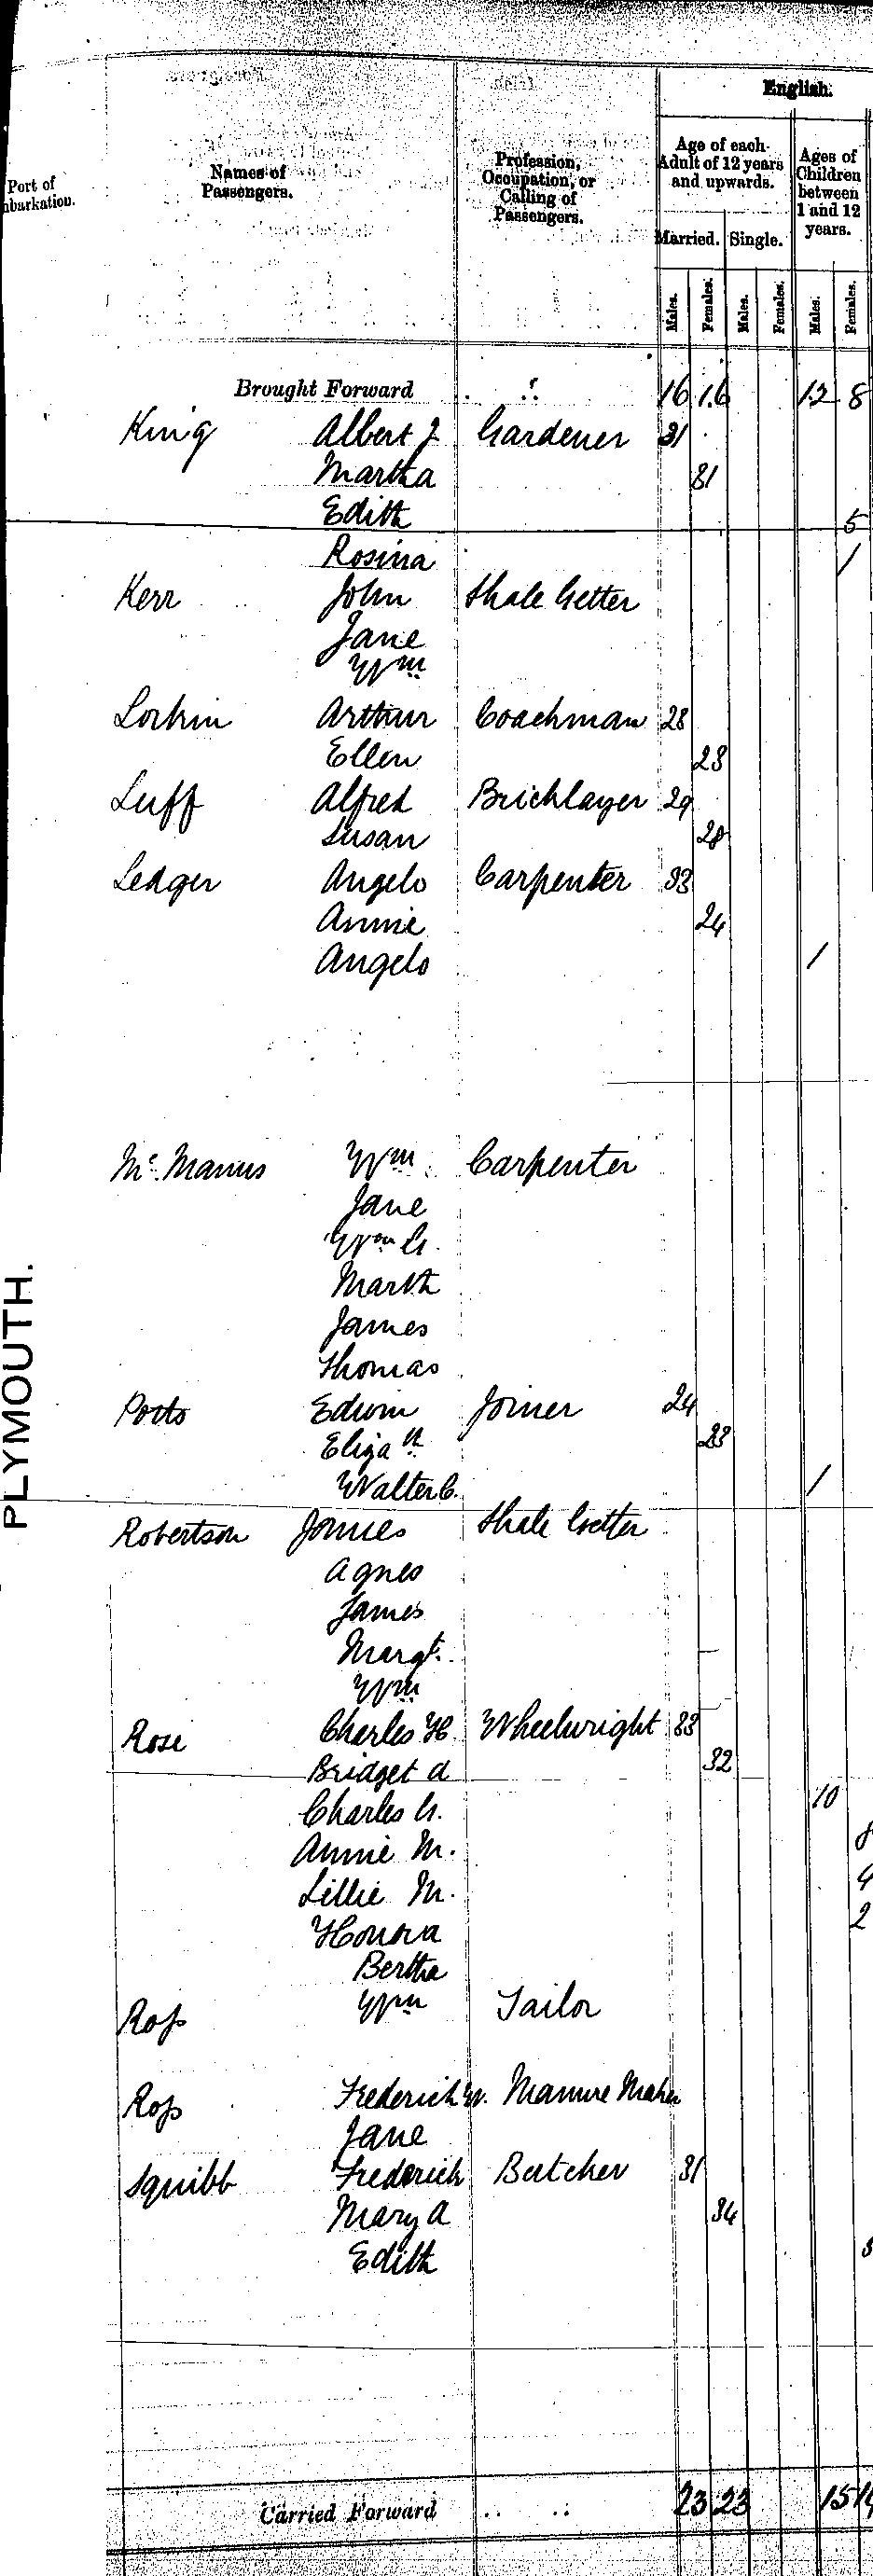 English.
Port of
Names of
Passengers.
Profession,
Occupation, or
Calling of
Passengers.
Age of each
Adult of 12 years
and upwards.
Ages of
Children
between
1 and 12
years.
Married. Single.
Males. Females. Males. Females. Males. Females.
Brought Forward 16 16 12 8
King Albert J Gardener 31
Martha 31
Edith 5
Rosina 1
Kerr John Shale Getter
Jane
Wm
Lorkin Arthur Coachman 28
Ellen 28
Luff Alfred Bricklayer 29
Susan 28
Ledger Angelo Carpenter 33
Annie 24
Angelo 1
PLYMOUTH.
Mc. Manus Wm Carpenter
Jane
Wm G.
Marth
James
Thomas
Potts Edwin Joiner 24
Elizath 23
Walter C. 1
Robertson James Shale Getter
Agnes
James
Margt.
Wm
Rose Charles H. Wheelwright 33
Bridget A 32
Charles G. 10
Annie M. 8
Lillie M. 4
Honora 2
Bertha
Ross Wm Tailor
Ross Frederick W. Manure Maker
Jane
Squibb Frederick Butcher 31
Mary A 34
Edith
Carried Forward 23 23 15